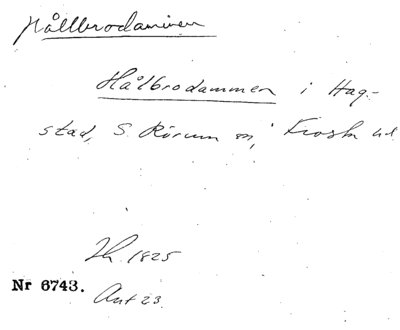 Hålbrodammen
Hålbrodammen i Hag-
stad, S. Rörum sn, Frosta hd
1825
Nr 6743.
Ant 23.